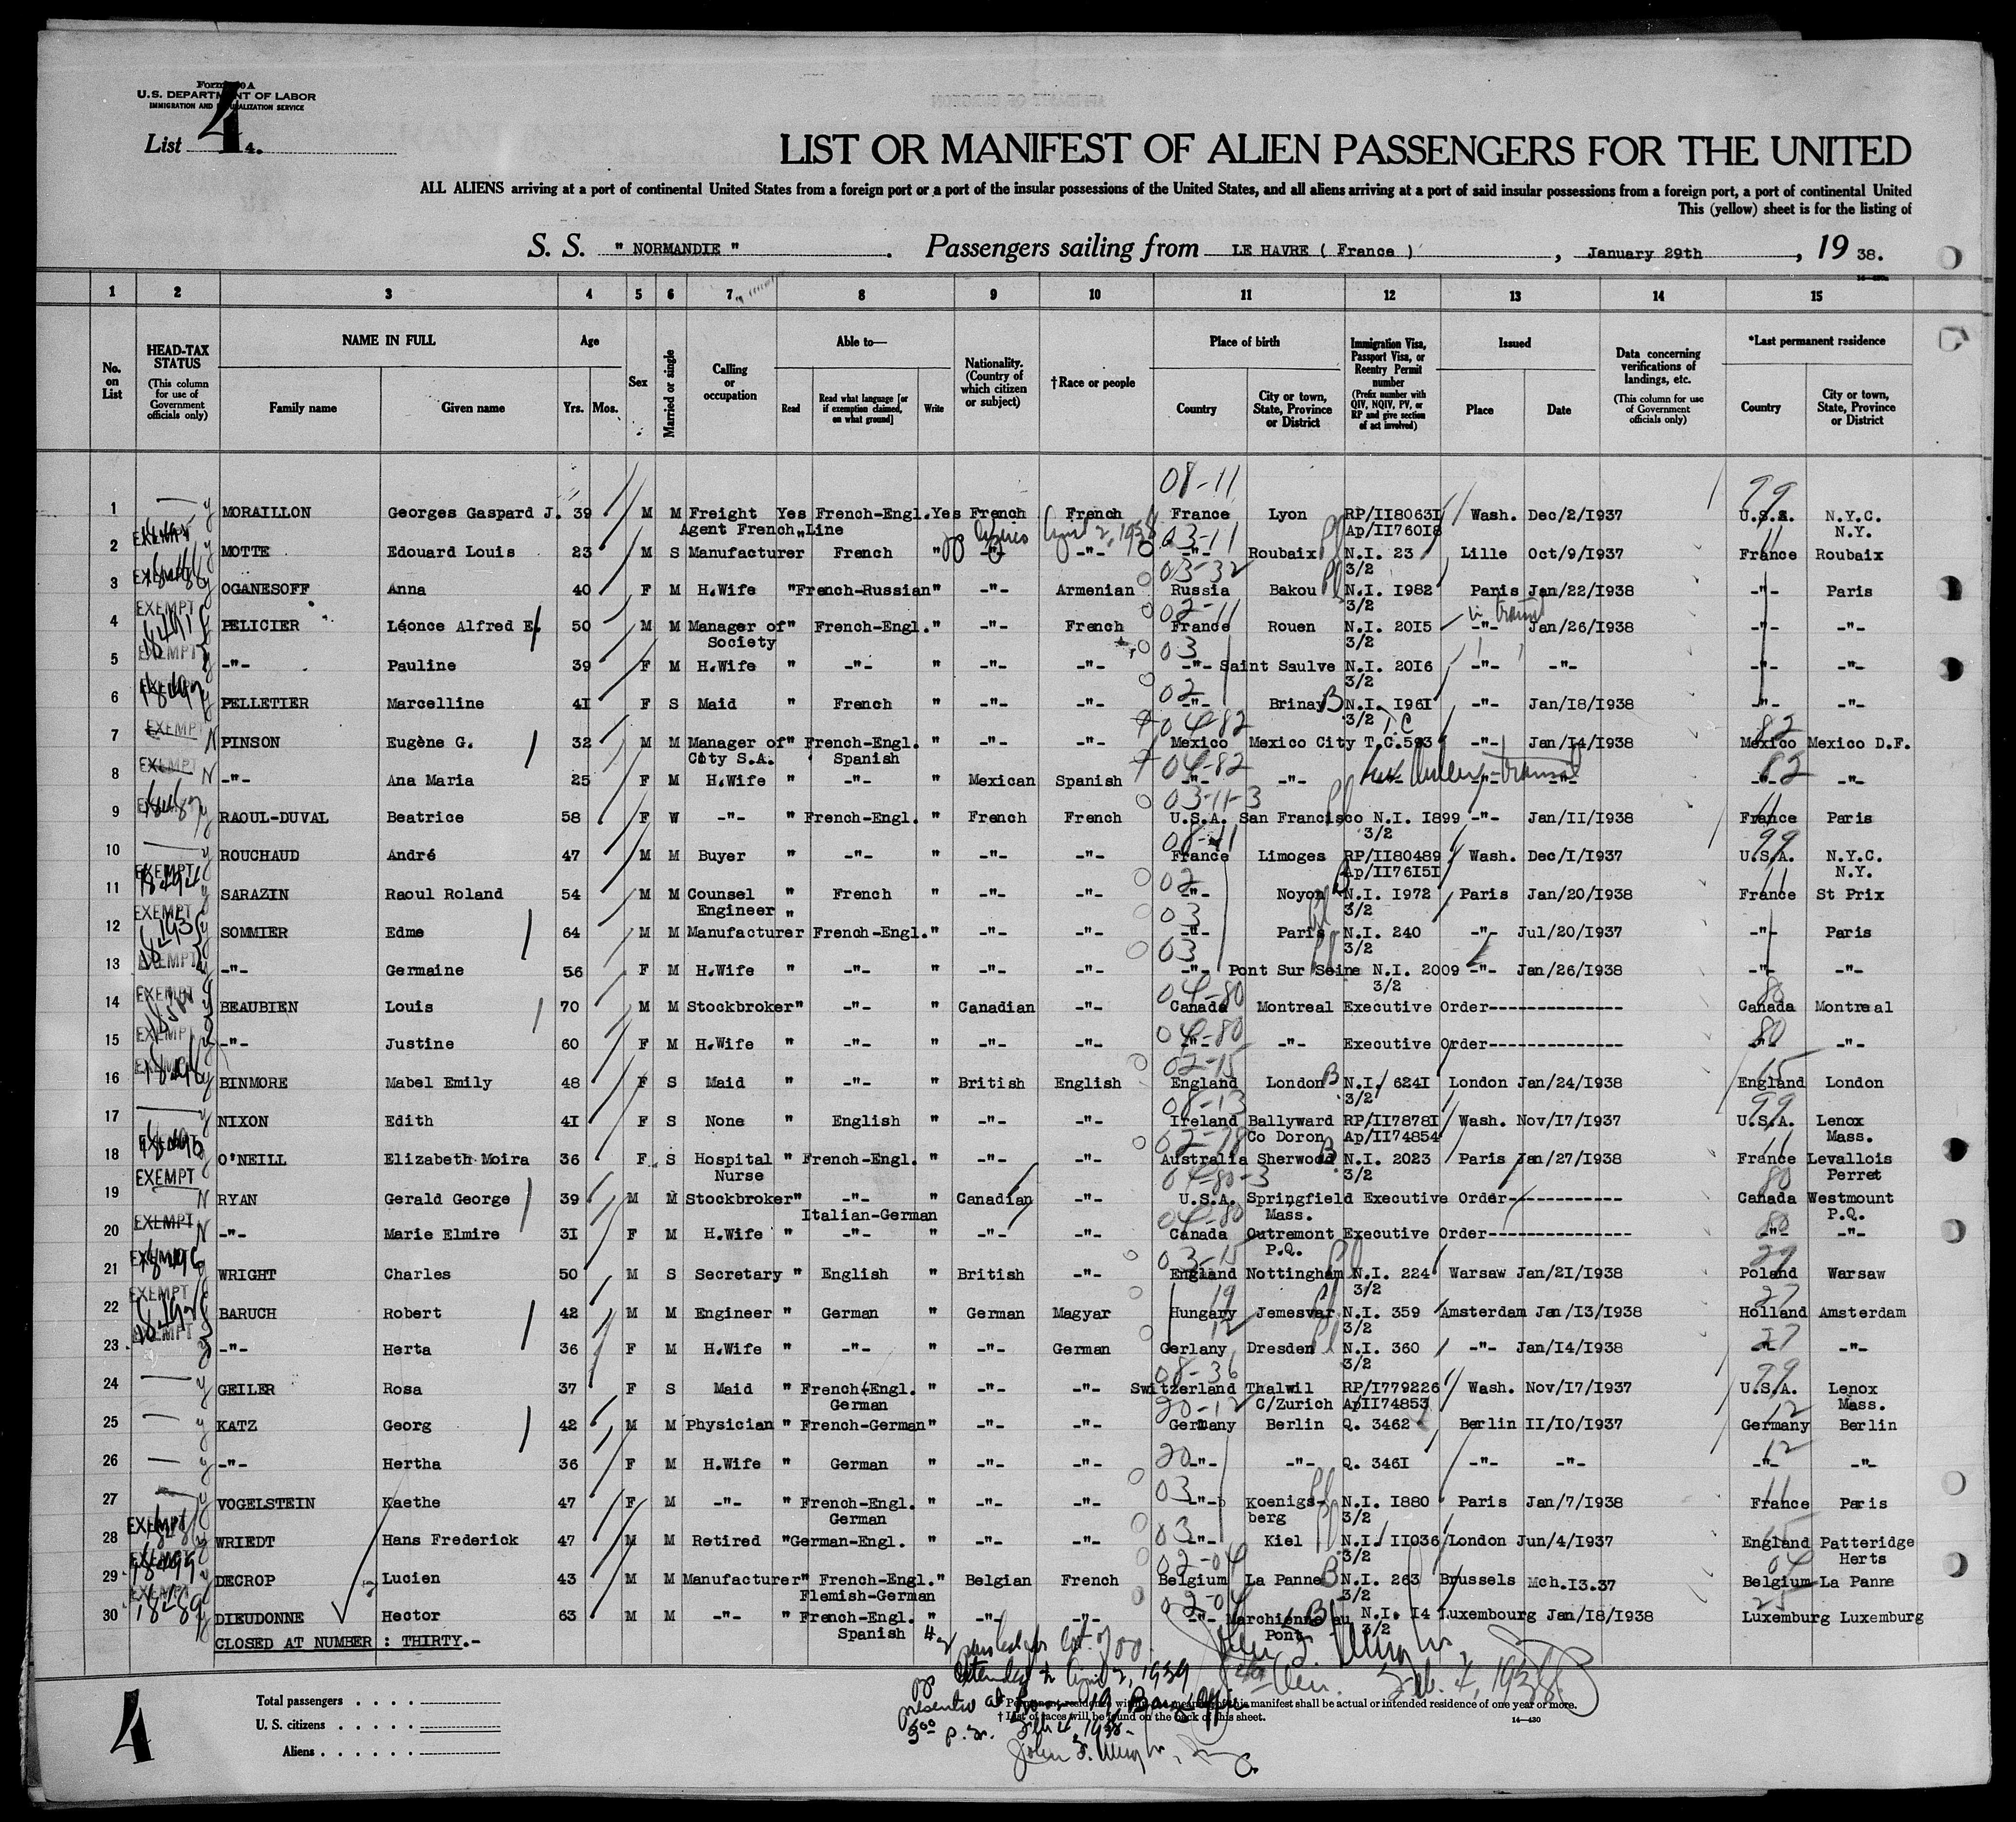 Form 500 A
U.S. DEPARTMENT OF LABOR
IMMIGRATION AND NATURALIZATION SERVICE
List 4 4.
LIST OR MANIFEST OF ALIEN PASSENGERS FOR THE UNITED
ALL ALIENS arriving at a port of continental United States from a foreign port or a port of the insular possessions of the United States, and all aliens arriving at a port of said insular possessions from a foreign port, a port of continental United
This (yellow) sheet is for the listing of
S. S. " NORMANDIE ". Passengers sailing from LE HAVRE ( France ), January 29th, 19 38.
1 2 3 4 5 6 7 8 9 10 11 12 13 14 15
No. on List
HEAD-TAX STATUS (This column for use of Government officials only)
NAME IN FULL
Family name Given name
Age
Yrs. Mos.
Sex
Married or single
Calling or occupation
Able to—
Read Read what language [or if exemption claimed, on what ground] Write
Nationality. (Country of which citizen or subject)
†Race or people
Place of birth
Country City or town, State, Province or District
Immigration Visa, Passport Visa, or Reentry Permit number (Prefix number with QIV, NQIV, PV, or RP and give section of act involved)
Issued
Place Date
Data concerning verifications of landings, etc. (This column for use of Government officials only)
*Last permanent residence
Country City or town, State, Province or District
08-11 99
1 MORAILLON Georges Gaspard J. 39 M M Freight Yes French-Engl. Yes French French France Lyon RP/II8063I Wash. Dec/2/1937 U.S.A. N.Y.C.
Agent French Line Ap/II760I8 N.Y.
EXEMPT April 2, 1938 03-11 11
2 MOTTE Edouard Louis 23 M S Manufacturer French " -"- -"- -"- Roubaix N.I. 23 Lille Oct/9/1937 France Roubaix
EXEMPT 03-32 3/2
3 OGANESOFF Anna 40 F M H.Wife "French-Russian" -"- Armenian Russia Bakou N.I. I982 Paris Jan/22/I938 -"- Paris
EXEMPT 02-11 3/2 in transit
4 PELICIER Léonce Alfred E. 50 M M Manager of" French-Engl." -"- French France Rouen N.I. 20I5 -"- Jan/26/I938 -"- -"-
EXEMPT Society 03 3/2
5 -"- Pauline 39 F M H.Wife " -"- " -"- -"- -"- Saint Saulve N.I. 20I6 -"- -"- -"- -"-
EXEMPT 02 3/2
6 PELLETIER Marcelline 4I F S Maid " French " -"- -"- -"- Brinay B N.I. I96I -"- Jan/I8/I938 -"- -"-
EXEMPT 04-82 3/2 T.C 82
7 PINSON Eugène G. 32 M M Manager of" French-Engl. " -"- -"- Mexico Mexico City T.C.593 -"- Jan/I4/I938 Mexico Mexico D.F.
EXEMPT City S.A. Spanish 04-82 82
8 -"- Ana Maria 25 F M H.Wife " -"- " Mexican Spanish -"- -"- -"- -"- -"- -"-
03-11-3 11
9 RAOUL-DUVAL Beatrice 58 F W -"- " French-Engl. " French French U.S.A. San Francisco N.I. I899 -"- Jan/II/I938 France Paris
08-11 3/2 99
10 ROUCHAUD André 47 M M Buyer " -"- " -"- -"- France Limoges RP/II80489 Wash. Dec/I/I937 U.S.A. N.Y.C.
EXEMPT 02 Ap/II76I5I 11 N.Y.
11 SARAZIN Raoul Roland 54 M M Counsel " French " -"- -"- -"- Noyon N.I. I972 Paris Jan/20/I938 France St Prix
EXEMPT Engineer " 03 3/2
12 SOMMIER Edme 64 M M Manufacturer French-Engl." -"- -"- -"- Paris N.I. 240 -"- Jul/20/I937 -"- Paris
EXEMPT 03 3/2
13 -"- Germaine 56 F M H.Wife " -"- " -"- -"- -"- Pont Sur Seine N.I. 2009 -"- Jan/26/I938 -"- -"-
EXEMPT 04-80 3/2 80
14 BEAUBIEN Louis 70 M M Stockbroker" -"- " Canadian -"- Canada Montreal Executive Order-------------- Canada Montreal
EXEMPT 04-80 80
15 -"- Justine 60 F M H.Wife " -"- " -"- -"- -"- -"- Executive Order-------------- -"- -"-
EXEMPT 02-15 15
16 BINMORE Mabel Emily 48 F S Maid " -"- " British English England London B N.I. 624I London Jan/24/I938 England London
08-13 3/2 99
17 NIXON Edith 4I F S None " English " -"- -"- Ireland Ballyward RP/II7878I Wash. Nov/I7/I937 U.S.A. Lenox
EXEMPT 02-78 Co Doron Ap/II74854 11 Mass.
18 O'NEILL Elizabeth Moira 36 F S Hospital " French-Engl. " -"- -"- Australia Sherwood B N.I. 2023 Paris Jan/27/I938 France Levallois
EXEMPT Nurse 04-80-3 3/2 80 Perret
19 RYAN Gerald George 39 M M Stockbroker" -"- " Canadian -"- U.S.A. Springfield Executive Order------------ Canada Westmount
EXEMPT Italian-German 04-80 Mass. 80 P.Q.
20 -"- Marie Elmire 3I F M H.Wife " -"- " -"- -"- Canada Outremont Executive Order--------------- -"- -"-
EXEMPT 03-15 P.Q. 29
21 WRIGHT Charles 50 M S Secretary " English " British -"- England Nottingham N.I. 224 Warsaw Jan/2I/I938 Poland Warsaw
EXEMPT 19 3/2 27
22 BARUCH Robert 42 M M Engineer " German " German Magyar Hungary Jemesvar N.I. 359 Amsterdam Jan /I3/I938 Holland Amsterdam
EXEMPT 12 3/2 27
23 -"- Herta 36 F M H.Wife " -"- " -"- German Gerlany Dresden N.I. 360 -"- Jan/I4/I938 -"- -"-
08-36 3/2 99
24 GEILER Rosa 37 F S Maid " French-Engl. " -"- -"- Switzerland Thalwil RP/I779226 Wash. Nov/I7/I937 U.S.A. Lenox
German 20-12 C/Zurich ApII74853 12 Mass.
25 KATZ Georg 42 M M Physician " French-German" -"- -"- Germany Berlin Q. 3462 Berlin II/I0/I937 Germany Berlin
20 12
26 -"- Hertha 36 F M H.Wife " German " -"- -"- -"- -"- Q. 346I -"- -"- -"- -"-
03 11
27 VOGELSTEIN Kaethe 47 F M -"- " French-Engl. " -"- -"- -"- Koenigs- N.I. I880 Paris Jan/7/I938 France Paris
EXEMPT German 03 berg 3/2 15
28 WRIEDT Hans Frederick 47 M M Retired "German-Engl. " -"- -"- -"- Kiel N.I. II036 London Jun/4/I937 England Patteridge
EXEMPT 02-04 3/2 04 Herts
29 DECROP Lucien 43 M M Manufacturer" French-Engl." Belgian French Belgium La Panne B N.I. 263 Brussels Mch.I3.37 Belgium La Panne
EXEMPT Flemish-German 02-04 3/2 25
30 DIEUDONNE Hector 63 M M -"- " French-Engl. " -"- -"- -"- Marchienne au N.I. I4 Luxembourg Jan/I8/I938 Luxemburg Luxemburg
Spanish Pont 3/2
CLOSED AT NUMBER : THIRTY.-
Feb. 4, 1938
April 2, 1939
4
Total passengers . . . .
U. S. citizens . . . . .
Aliens . . . . . .
* Permanent residence within the meaning of this manifest shall be actual or intended residence of one year or more.
† List of races will be found on the back of this sheet.
14—430